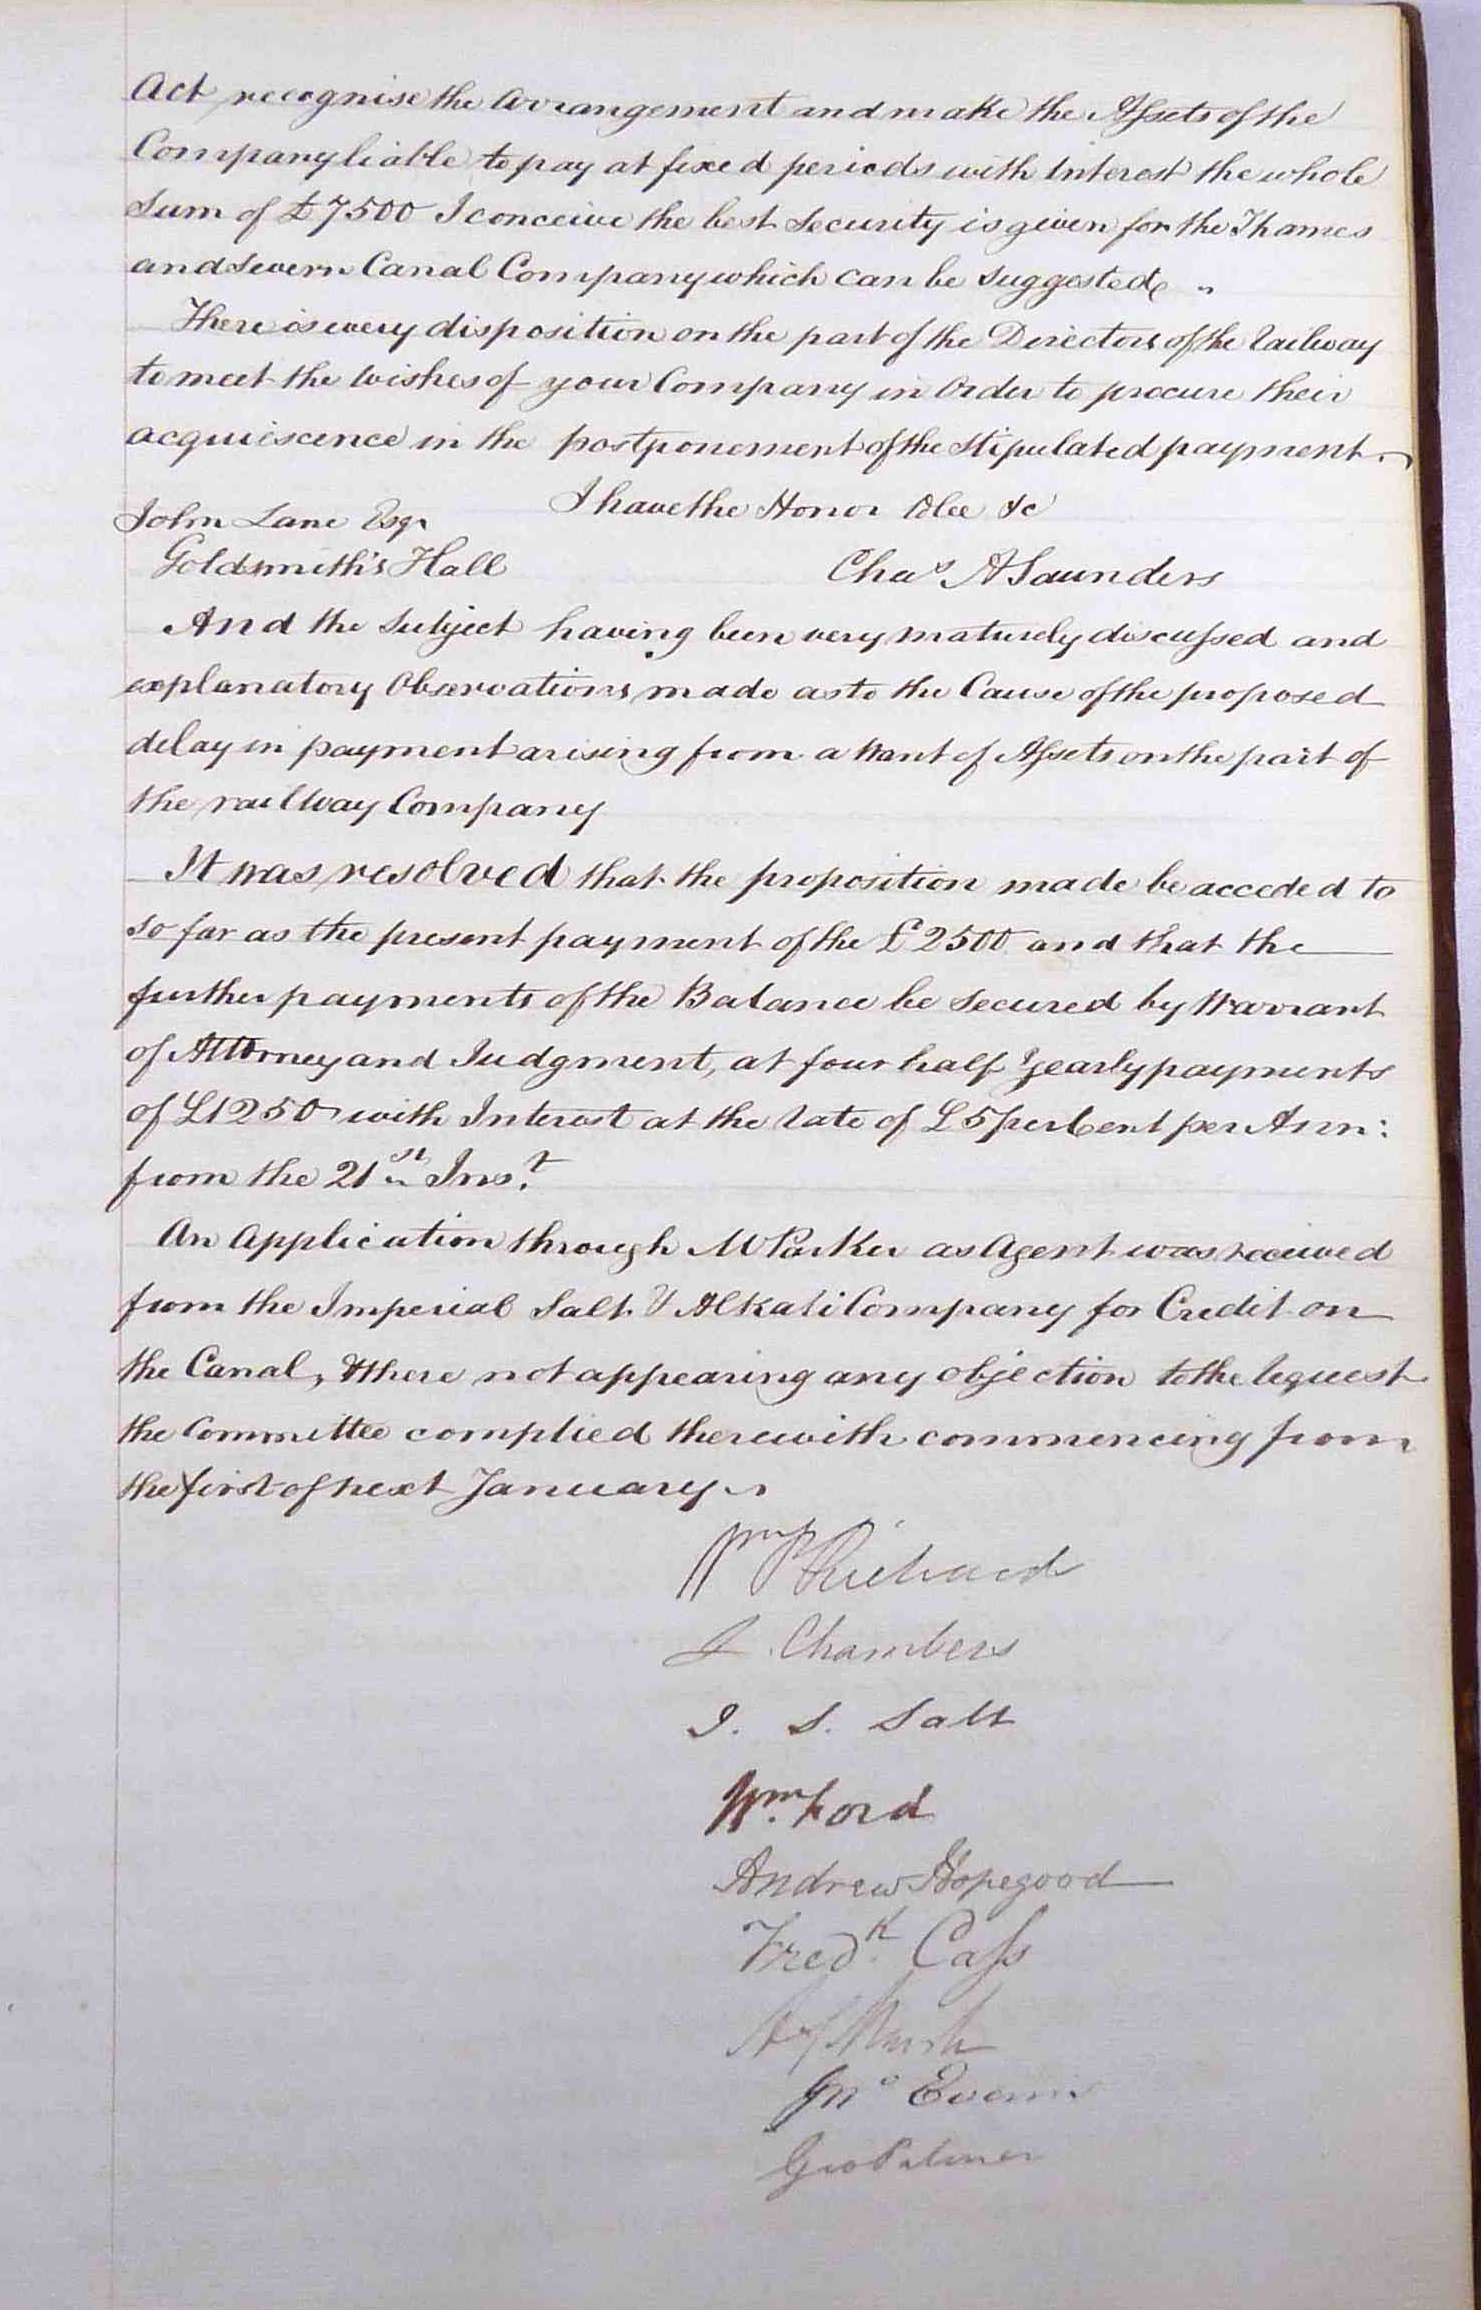 Act recognise the Arrangement and make the Assets of the
Company liable to pay at fixed periods with Interest the whole
Sum of £7500 I conceive the best Security is given for the Thames
and Severn Canal Company which can be suggested
There is every disposition on the part of the Directors of the Railway
to meet the Wishes of your Company in Order to procure their
acquiescence in the postponement of the Stipulated payment
I have the Honor &c &c
John Lane Esqr
Goldsmith's Hall
Chas A Saunders
And the Subject having been very maturely discussed and
explanatory Observations made as to the Cause of the proposed
delay in payment arising from a Want of Assets on the part of
the railway Company
It was resolved that the proposition made be acceded to
so far as the present payment of the £2500 and that the
further payments of the Balance be secured by Warrant
of Attorney and Judgment, at four half Yearly payments
of £1250 with Interest at the rate of £5 per Cent per Ann:
from the 21st Inst.
An Application through Mr Parker as Agent was received
from the Imperial Salt & Alkali Company for Credit on
the Canal, & there not appearing any objection to the request
the Committee complied therewith commencing from
the first of next January
Wm P Richard
J. Chambers
J. S. Salt
Wm. Ford
Andrew Hopegood
Fredk. Cass
Jno Evans
Geo Palmer